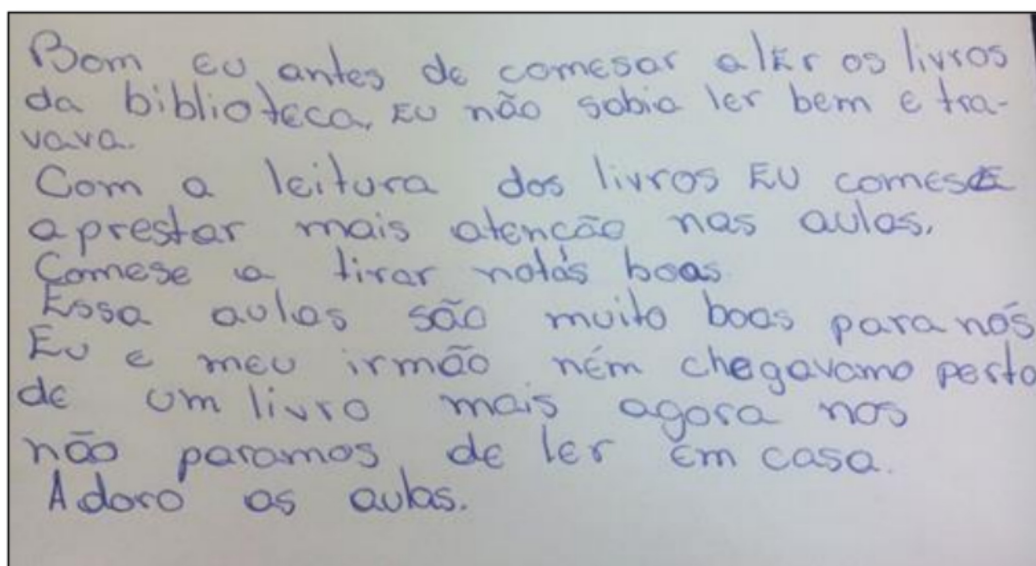 Bom eu antes de comesar a lEr os livros
da biblioteca, EU não sabia ler bem e tra-
vava.
Com a leitura dos livros EU comese
aprestar mais atenção nas aulas.
Comese a tirar notas boas.
Essa aulas são muito boas para nós
Eu e meu irmão ném chegavamo perto
de um livro mais agora nos
não paramos de ler em casa.
Adoro as aulas.